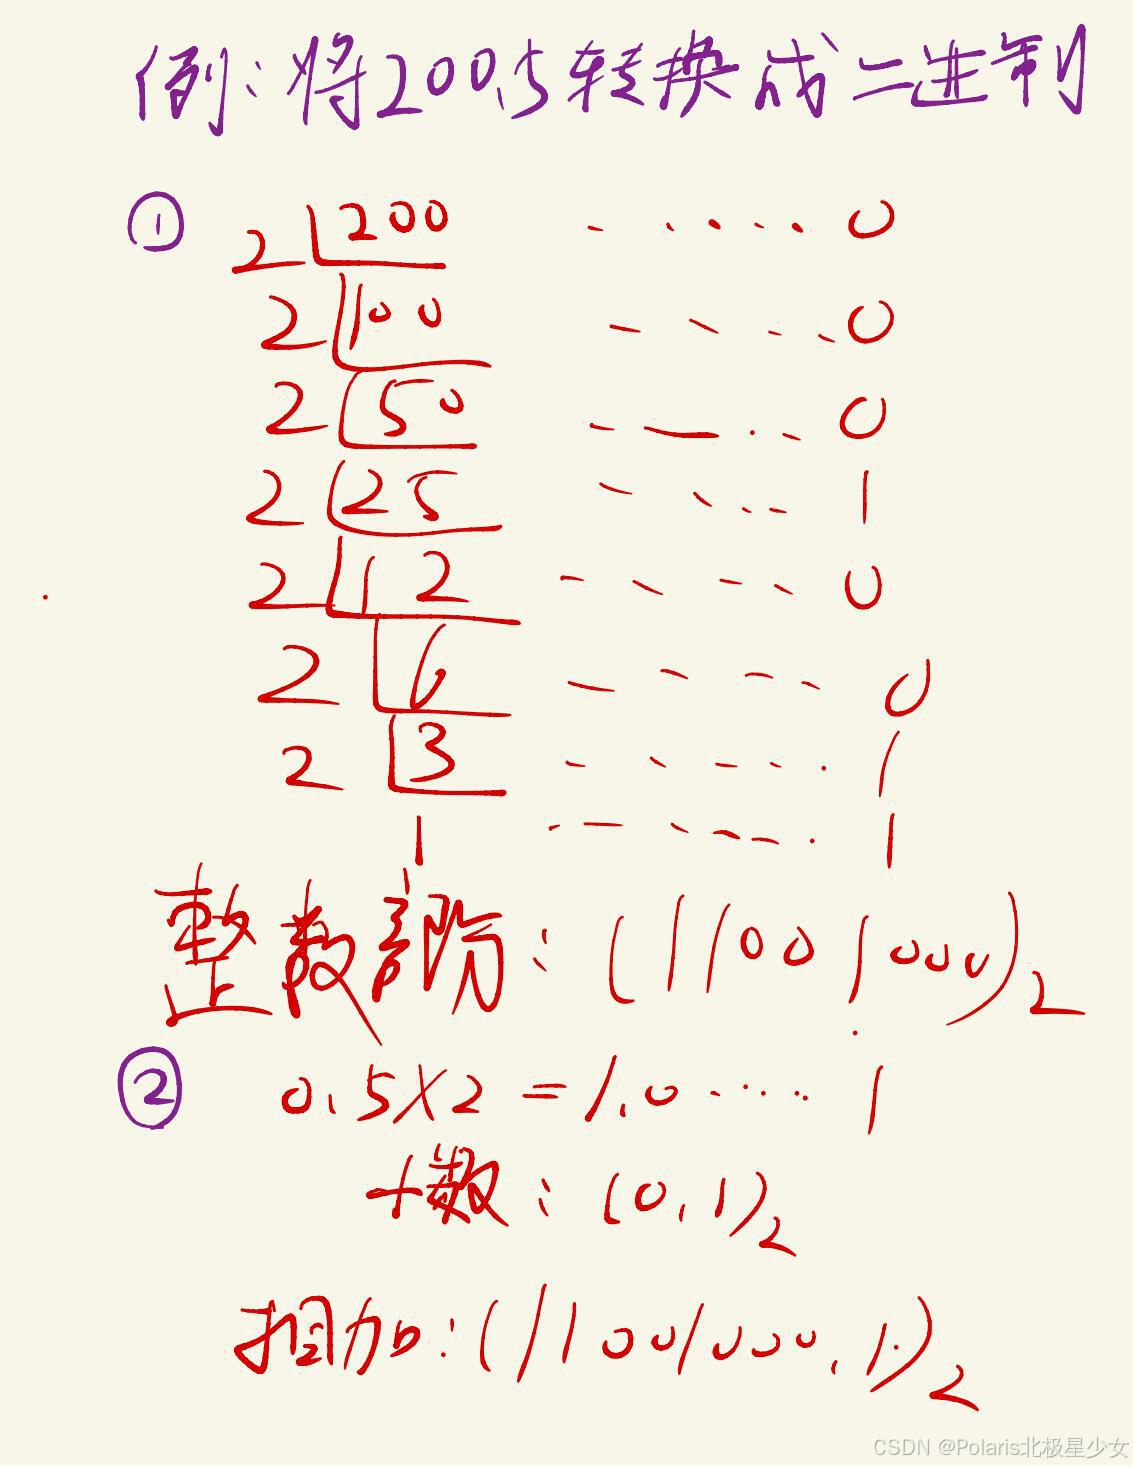 例:将200.5转换成二进制
① 2 200 ..... 0
2 100 ---- 0
2 50 ---- 0
2 25 ---- 1
2 12 ---- 0
2 6 ---- 0
2 3 ----. 1
1 -----. 1
整数部分:(11001000)2
② 0.5×2=1.0 ..... 1
小数:(0.1)2
相加:(11001000.1)2
CSDN @Polaris北极星少女